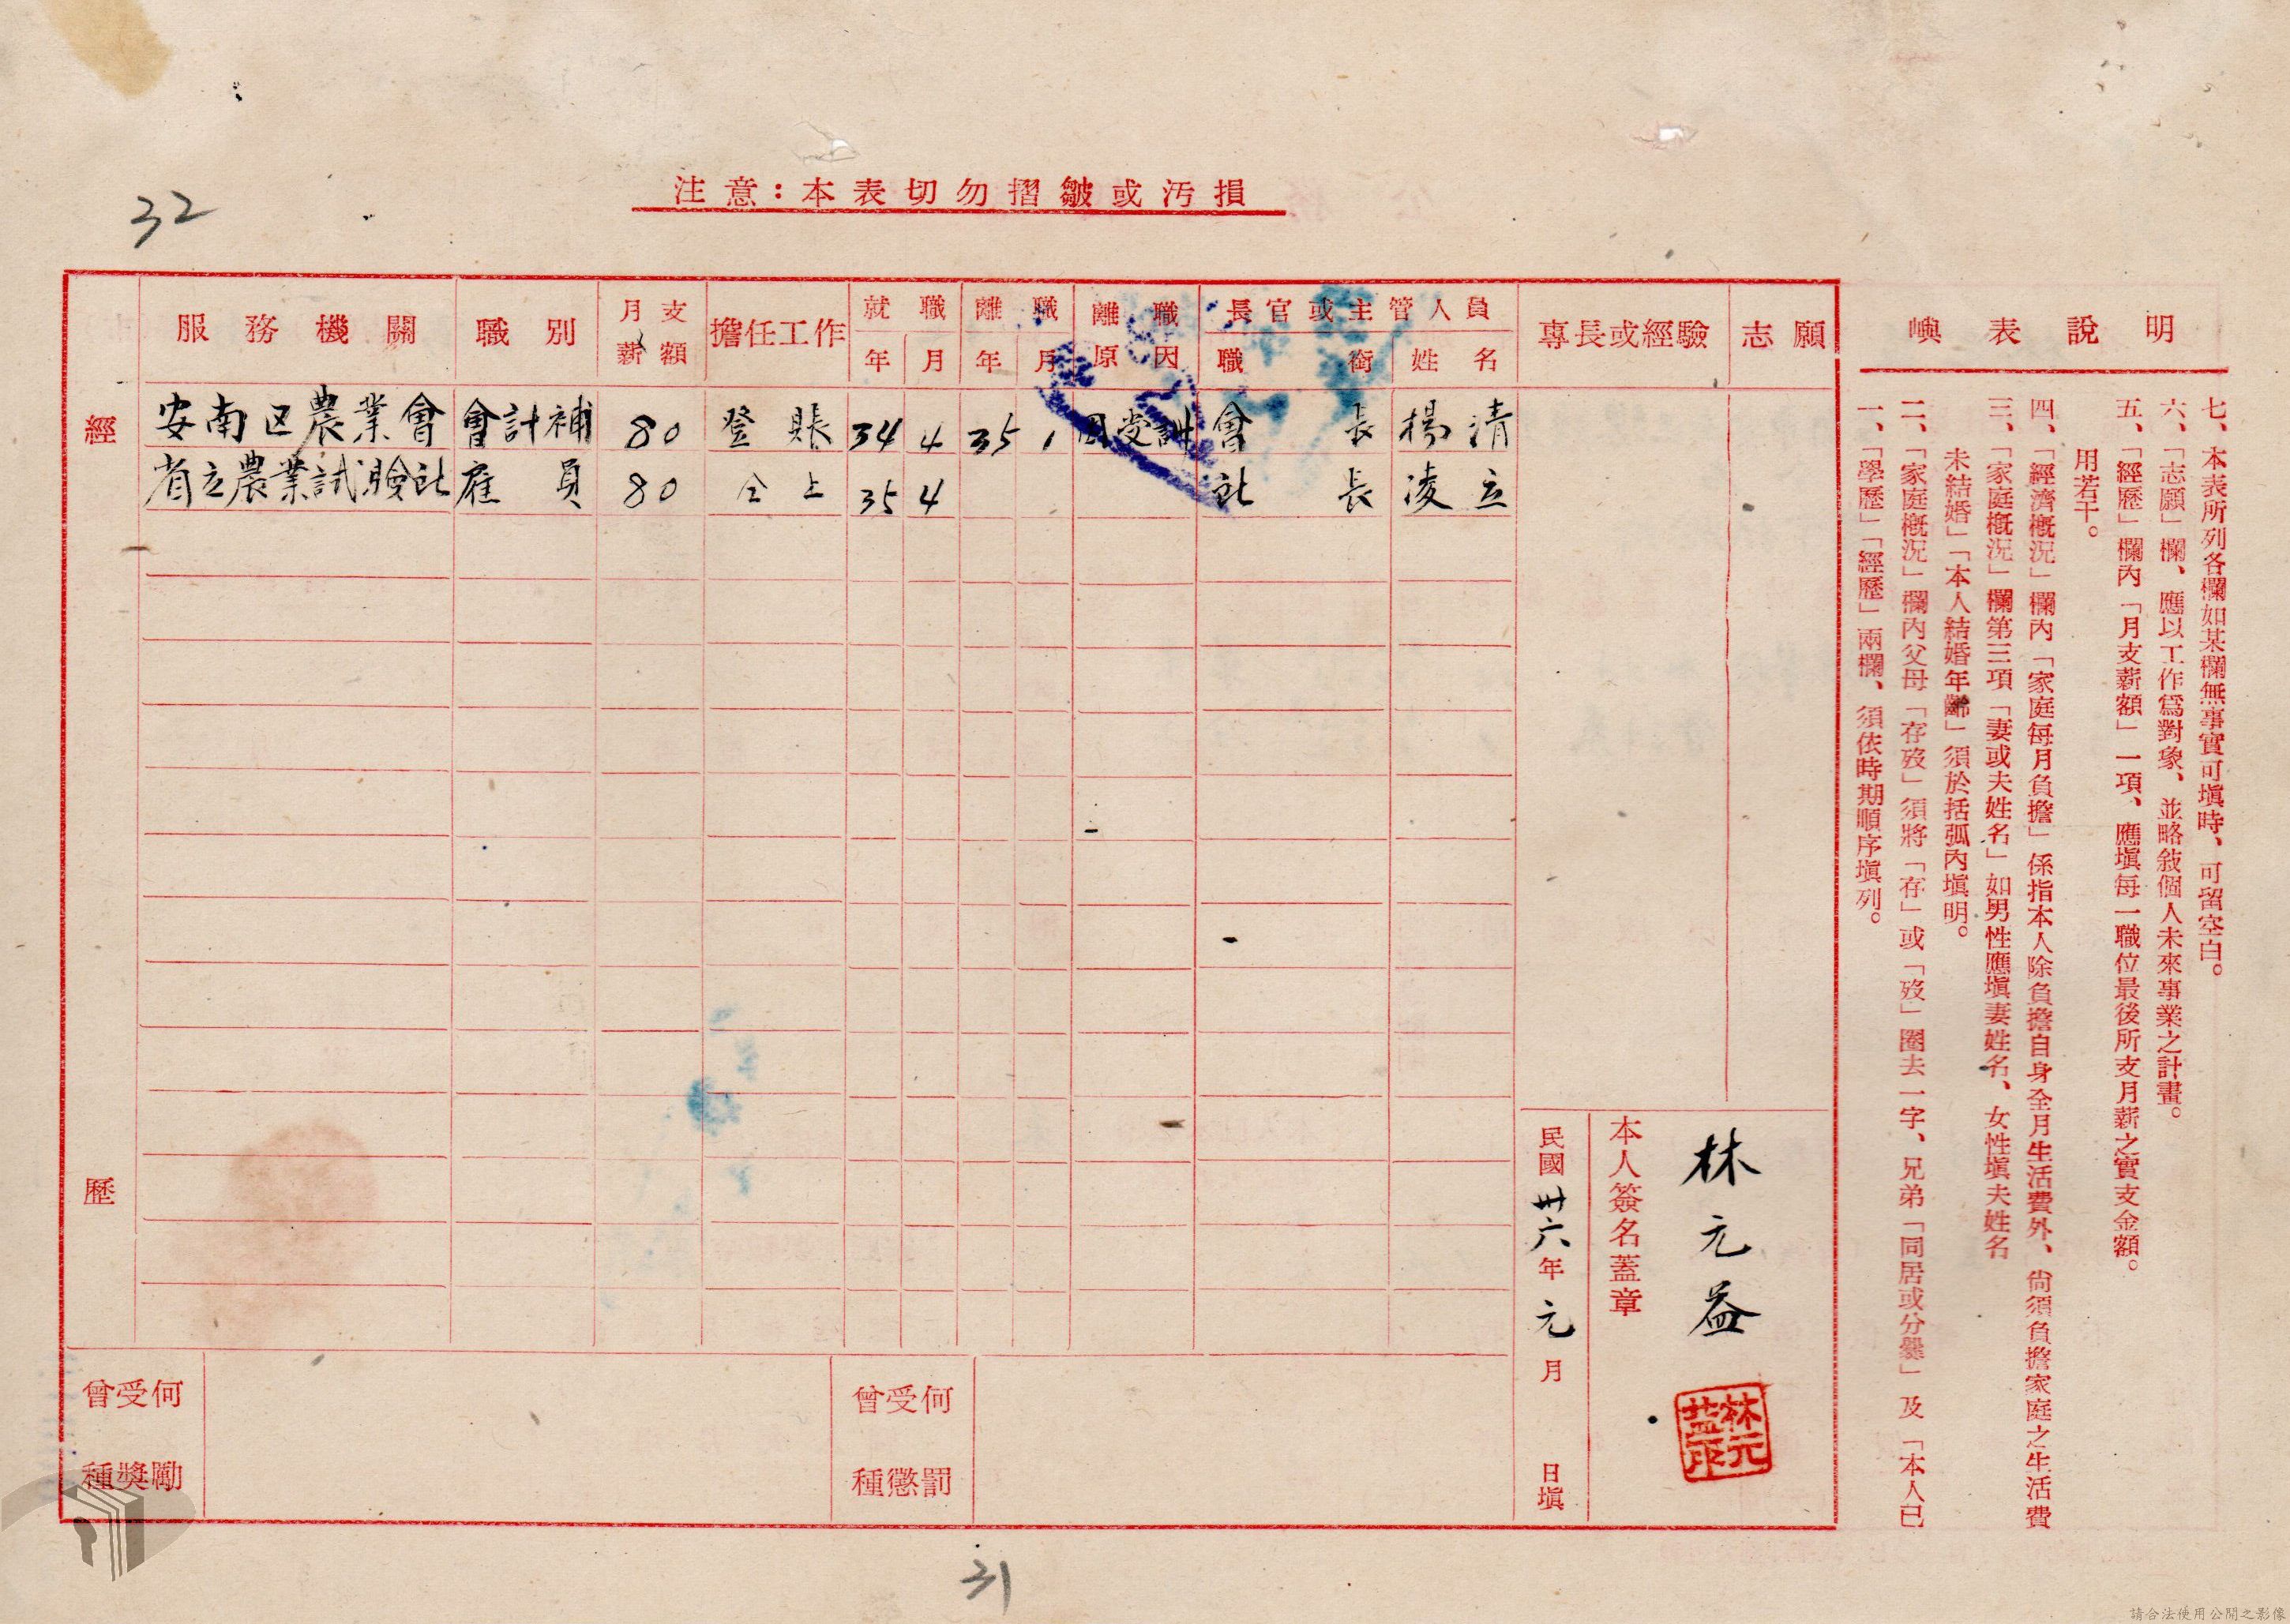 32
注意：本表切勿摺皺或汚損
經歷
服務機關 職別 月支薪額 擔任工作 就職年月 離職年月 離職原因 長官或主管人員職銜 姓名 專長或經驗 志願
安南区農業會 會計補 80 登賬 34 4 35 1 因受訓 會長 楊清
省立農業試驗社 雇員 80 仝上 35 4 社長 凌立
曾受何種獎勵
曾受何種懲罰
本人簽名蓋章
林元益
林元益印
民國卅六年元月 日塡
嶼表說明
一、「學歷」「經歷」兩欄、須依時期順序塡列。
二、「家庭槪況」欄內父母「存歿」須將「存」或「歿」圈去一字、兄弟「同居或分爨」及「本人已
未結婚」「本人結婚年齡」須於括弧內塡明。
三、「家庭槪況」欄第三項「妻或夫姓名」如男性應塡妻姓名、女性塡夫姓名
四、「經濟槪況」欄內「家庭每月負擔」係指本人除負擔自身全月生活費外、尙須負擔家庭之生活費
用若干。
五、「經歷」欄內「月支薪額」一項、應塡每一職位最後所支月薪之實支金額。
六、「志願」欄、應以工作爲對象、並略敍個人未來事業之計畫。
七、本表所列各欄如某欄無事實可塡時、可留空白。
31
請合法使用公開之影像